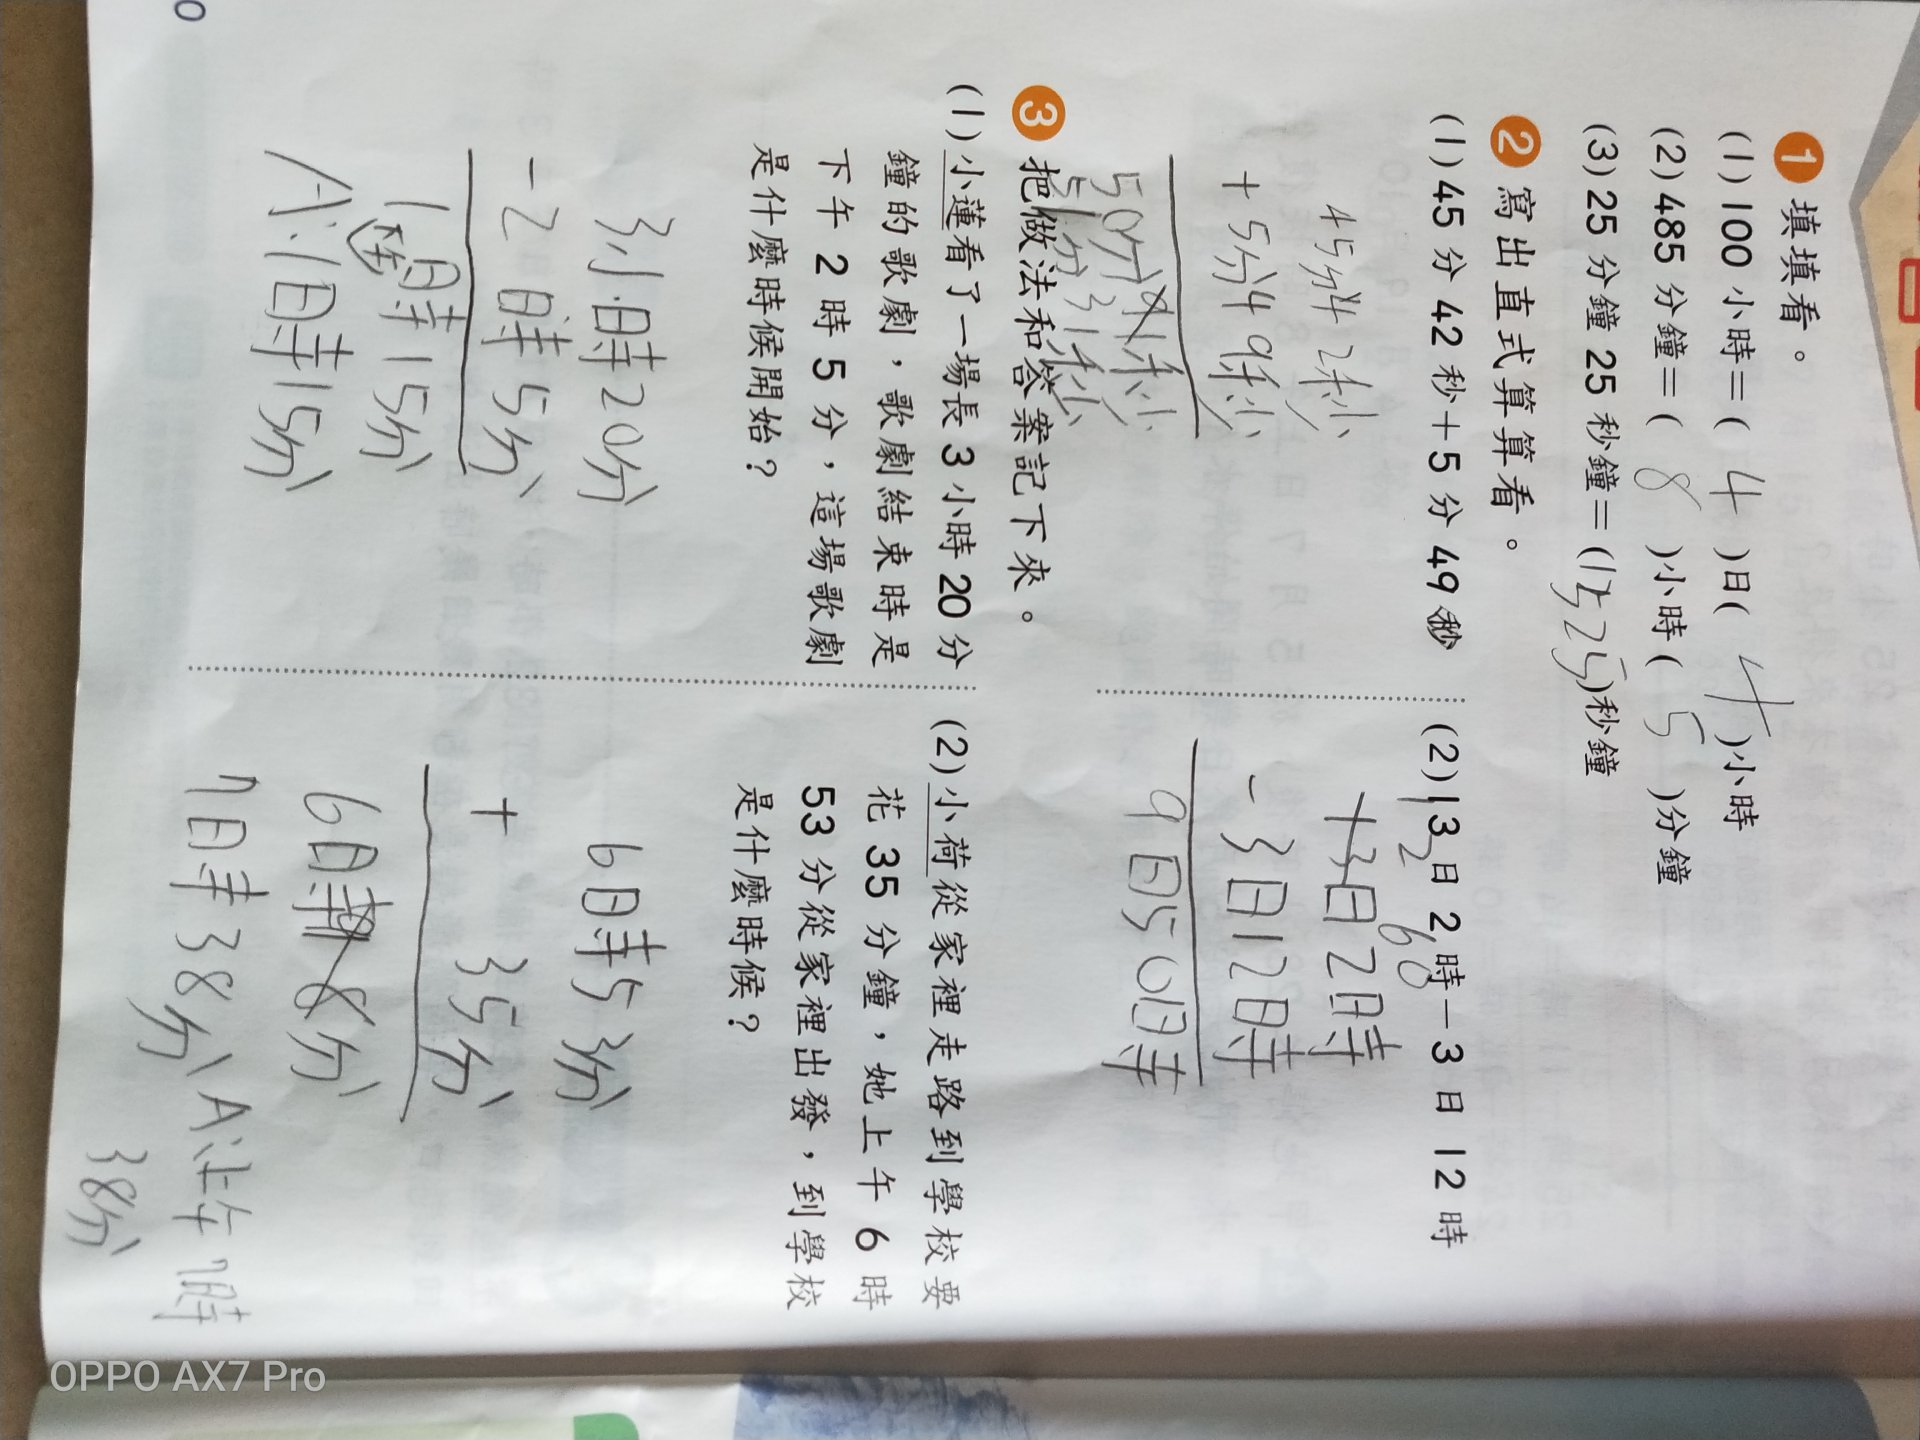 1 填填看。
(1) 100 小時=( 4 )日( 4 )小時
(2) 485 分鐘=( 8 )小時( 5 )分鐘
(3) 25 分鐘 25 秒鐘=(1525)秒鐘
2 寫出直式算算看。
(1) 45 分 42 秒+5 分 49 秒
45分42秒
+5分49秒
50分91秒
51分31秒
(2) 13 日 2 時-3 日 12 時
12 60
13日2時
-3日12時
9日50時
3 把做法和答案記下來。
(1) 小蓮看了一場長 3 小時 20 分
鐘的歌劇,歌劇結束時是
下午 2 時 5 分,這場歌劇
是什麼時候開始?
3小時20分
-2時5分
1時15分
A:1時15分
(2) 小荷從家裡走路到學校要
花 35 分鐘,她上午 6 時
53 分從家裡出發,到學校
是什麼時候?
6時53分
+ 35分
6時88分
7時38分 A:上午7時
38分
0
OPPO AX7 Pro